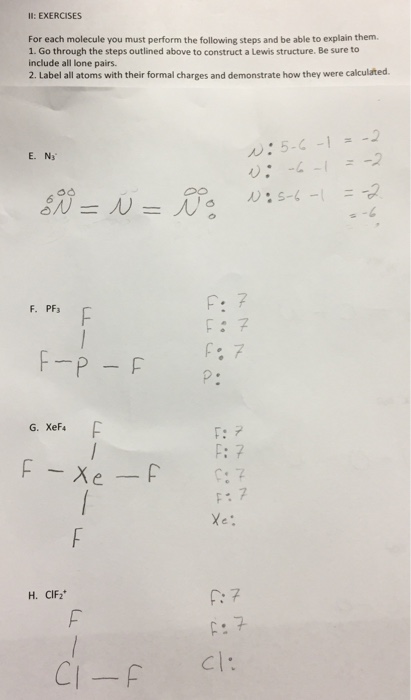 II: EXERCISES
For each molecule you must perform the following steps and be able to explain them.
1. Go through the steps outlined above to construct a Lewis structure. Be sure to
include all lone pairs.
2. Label all atoms with their formal charges and demonstrate how they were calculated.
E. N₃⁻
N = N = N
N: 5-6 -1 = -2
N: -6 -1 = -2
N: 5-6 -1 = -2
= -6
F. PF₃
F
|
F - P - F
F: 7
F: 7
F: 7
P:
G. XeF₄
F
|
F - Xe - F
|
F
F: 7
F: 7
F: 7
F: 7
Xe:
H. ClF₂⁺
F
|
Cl - F
F: 7
F: 7
Cl: